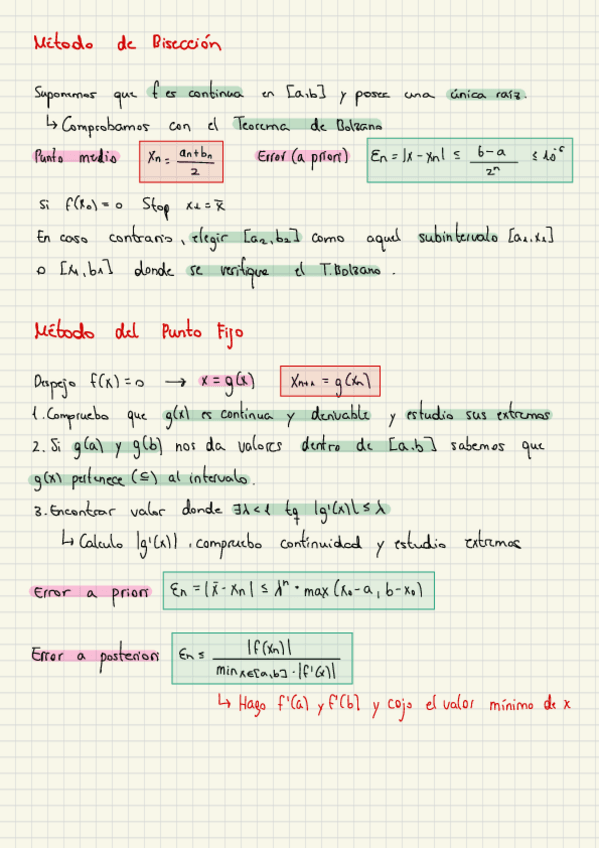 Método de Bisección
Suponemos que f es continua en [a,b] y posee una única raíz.
↳ Comprobamos con el Teorema de Bolzano
Punto medio Xn = an+bn / 2 Error (a priori) En = |x - xn| ≤ b-a / 2^n ≤ 10^-6
Si f(x0) = 0 Stop x1 = x̄
En caso contrario, elegir [a2,b2] como aquel subintervalo [a1,x1]
o [x1,b1] donde se verifique el T.Bolzano.
Método del Punto Fijo
Despejo f(x) = 0 → x = g(x) Xn+1 = g(Xn)
1. Compruebo que g(x) es continua y derivable y estudio sus extremos
2. Si g(a) y g(b) nos da valores dentro de [a,b] sabemos que
g(x) pertenece (⊆) al intervalo.
3. Encontrar valor donde ∃λ<1 tq |g'(x)| ≤ λ
↳ Calculo |g'(x)|, compruebo continuidad y estudio extremos
Error a priori En = |x̄ - xn| ≤ λ^n · max (x0-a, b-x0)
Error a posteriori En ≤ |f(xn)| / min x∈[a,b] · |f'(x)|
↳ Hago f'(a) y f'(b) y cojo el valor mínimo de x